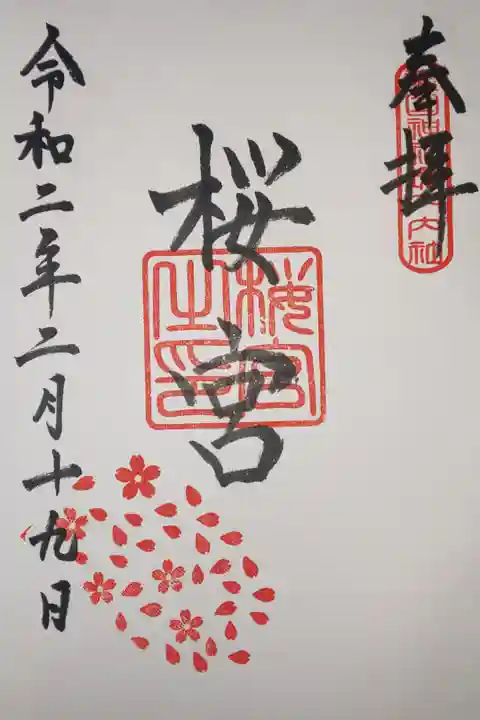 奉拝
桜宮
桜宮之印
令和二年二月十九日